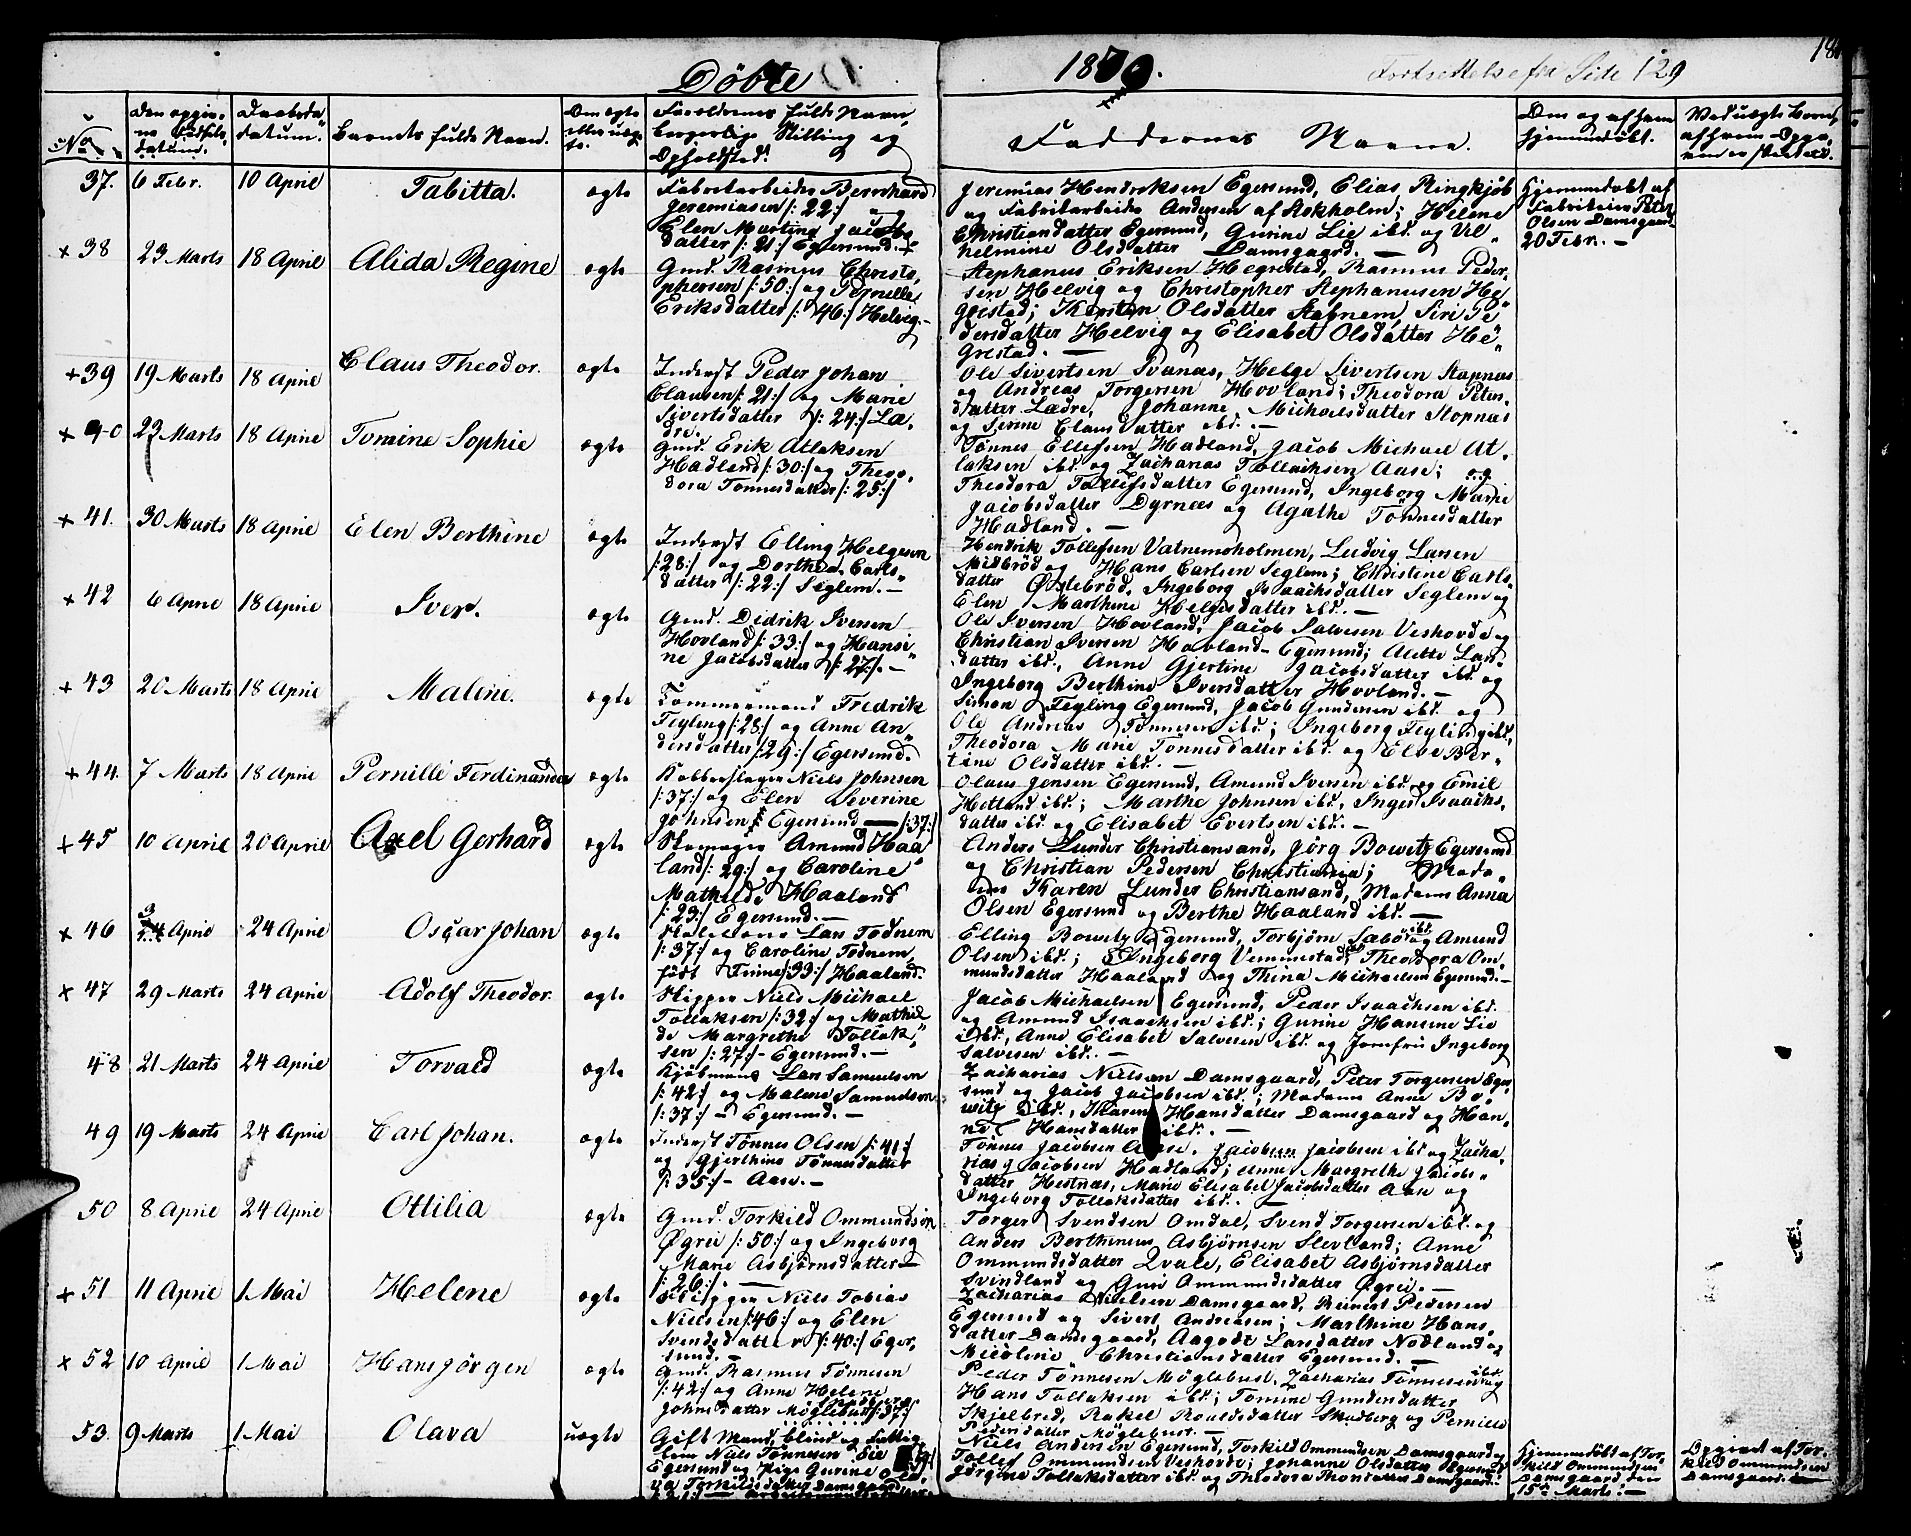 Döbte
1870.
Fortsettelse fra Side 129
No
Den opgivne Födsels datum.
Daabsdatum.
Barnets fulde Navn.
Om ægte eller uægte.
Forældrenes fulde Navn, borgerlige Stilling og Opholdsted.
Faddernes Navne.
Om og af hvem hjemmedöbt.
37. 6 Febr. 10 April Tabitta. ægte
Fabrikarbeider Bernhard
Jeremiasen /: 22:/ og
Elen Martine Jacobs
datter /: 21:/ Egersund.
Jeremias Hendriksen Egersund, Elias Ringkjöb
og Fabrikarbeider Andersen af Stokholm; Helene
Christiansdatter Egersund, Gurine Lie ibd. og Vil-
helmine Olsdatter Damsgaard.
Hjemmedöbt af
Fabrikeier Peter
Olsen Damsgaard
20 Febr. —
+ 38 23 Marts 18 April Alida Regine ægte
Gmd. Rasmus Christo-
phersen /: 50:/ og Pernille
Eriksdatter /: 46:/ Helvig.
Stephanus Eriksen Hegrestad, Rasmus Peder-
sen Helvig og Christopher Stephanusen He-
grestad; Karsten Olsdatter Stapnem, Siri Pe-
dersdatter Helvig og Elisabet Olsdatter He-
grestad. —
+ 39 19 Marts 18 April Claus Theodor. ægte
Inderst Peder Johan
Clausen /: 21:/ og Marie
Sivertsdatter /: 24:/ Læ-
dre.
Ole Sivertsen Svanæs, Helge Sivertsen Stapnæs
og Andreas Torgersen Hovland; Theodora Peters-
datter Lædre, Johanne Michaelsdatter Stopnæs
og Serine Clausdatter ibd. —
+ 40 23 Marts 18 April Tomine Sophie ægte
Gmd. Erik Atlaksen
Hadland /: 30:/ og Theo-
dora Tönnesdatter /: 25:/
Tönnes Ellefsen Hadland, Jacob Michael At-
laksen ibd. og Zacharias Tollachsen Aase; og
Theodora Tollefsdatter Egersund, Ingeborg Marie
Jacobsdatter Dyrnæs og Agathe Tönnesdatter
Hadland. —
+ 41. 30 Marts 18 April Elen Berthine ægte
Inderst Elling Helgesen
/: 28:/ og Dorthea Carls-
datter /: 22:/ Seglem. —
Hendrik Tollefsen Vatnemsholmen, Ludvig Larsen
Midbröd og Hans Carlsen Seglem; Christine Carls-
datter Østebröd, Ingeborg Isaachsdatter Seglem og
Elen Marthine Helgesdatter ibd. —
+ 42 6 April 18 April Iver. ægte
Gmd. Didrik Iversen
Hovland /: 33:/ og Hansi-
ne Jacobsdatter /: 27:/. —
Ole Iversen Hovland, Jacob Salvesen Veshovde og
Christian Iversen Hovland- Egersund; Alette Lar-
datter ibd., Anne Gjertine Jacobsdatter ibd. og
Ingeborg Berthine Iversdatter Hovland. —
+ 43 20 Marts 18 April Maline. ægte
Tömmermand Fredrik
Tegling /: 28:/ og Anne An-
dersdatter /: 29:/ Egersund.
Simon Tegling Egersund, Jacob Gundersen ibd. og
Ole Andreas Tönnesen ibd.; Ingeborg Tegling ibd.,
Theodora Marie Tönnesdatter ibd. og Elve Ber-
tine Olsdatter ibd. —
+ 44. 7 Marts 18 April Pernille Ferdinande ægte
Kobberslager Niels Johnsen
/: 37:/ og Elen Severine
Johnsen Egersund — /: 37:/
Olaus Jensen Egersund, Amund Iversen ibd. og Emil
Hetland ibd.; Marthe Johnsen ibd., Inger Isaachs-
datter ibd. og Elisabet Evertsen ibd. —
+ 45 10 April 20 April Axel Gerhard ægte
Skomager Amund Haa-
land /: 29:/ og Caroline
Mathilde Haaland
/: 23:/ Egersund. —
Anders Lunder Christiansand, Jörg Bowitz Egersund
og Christian Pedersen Christiania; Mada-
me Karen Lunder Christiansand, Madame Anna
Olsen Egersund og Berthe Haaland ibd. —
+ 46 4 April 24 April Oscar Johan ægte
Lars Todnem
/: 37:/ og Caroline Todnem
födt Tinne /: 33:/ Haaland.
Elling Bowitz Egersund, Torbjörn Sæbö ibd. og Amund
Olsen ibd.; Ingeborg Vemmestad, Theodora Om-
mundsdatter Haaland og Thina Michaelsen Egersund. —
+ 47 29 Marts 24 April Adolf Theodor. ægte
Skipper Niels Michael
Tollaksen /: 32:/ og Mathil-
de Margrethe Tollak-
sen /: 27:/ - Egersund. —
Jacob Michaelsen Egersund, Peder Isaachsen ibd.
og Amund Isaachsen ibd.; Gurine Hansine Lie
ibd., Anne Elisabet Salvesen ibd. og Jomfru Ingeborg
Salvesen ibd. —
48 21 Marts 24 April Torvald ægte
Kjöbmand Lars Samuelsen
/: 42:/ og Malene Samuelsen
/: 37:/ - Egersund. —
Zacharias Nielsen Damsgaard, Peter Torgersen Eger-
sund og Jacob Jacobsen ibd.; Madame Anne Bo-
witz ibd., Karen Hansdatter Damsgaard og Han-
ne Hansdatter ibd. —
49 19 Marts 24 April Carl Johan. ægte
Inderst Tönnes Olsen /: 41:/
og Gjerthine Tönnesdatter
/: 35:/ - Aase. —
Tönnes Jacobsen Aase, Jacobsen Jacobsen ibd. og Zacha-
rias Jacobsen Hadland; Anne Margrethe Jacobs-
datter Hestnæs, Marie Elisabet Jacobsdatter Aase og
Ingeborg Tollaksdatter ibd. —
50 8 April 24 April Ottilia ægte
Gmd. Torkild Ommundsen
Øgrei /: 50:/ og Ingeborg
Marie Asbjörnsdatter
/: 26:/. —
Torger Svendsen Omdal, Svend Torgersen ibd. og
Anders Berthinius Asbjörnsen Slevland; Anne
Ommundsdatter Qvale, Elisabet Asbjörnsdatter
Svindland og Guri Ommundsdatter Øgrei. —
+ 51 11 April 1 Mai Helene ægte
Skipper Niels Tobias
Nielsen /: 46:/ og Elen
Svendsdatter /: 40:/ Eger-
sund. —
Zacharias Nielsen Damsgaard, Reinert Pedersen
Egersund og Sivert Andreasen; Marthine Hans-
datter Damsgaard, Aagodt Larsdatter Nodland og
Nicoline Christiansdatter Egersund. —
+ 52 10 April 1 Mai Hans Jörgen ægte
Gmd. Rasmus Tönnesen
/: 42:/ og Anne Helene
Johnsdatter Möglebust /: 37:/
Peder Tönnesen Möglebust, Zacharias Tönnesen ibd. og
Hans Tollaksen ibd.; Tomine Gundersdatter
Skjelbred, Rakel Roaldsdatter Skadberg og Pernille
Pedersdatter Möglebust. —
53. 9 Marts 1 Mai Olava uægte
Gift Mand, blind og Fattig-
lem Niels Tönnesen Eie
Egersund og Pige Gurine Ola-
va Torkildsdatter Damsgaard
Niels Andersen Egersund, Torkild Ommundsen Damsgaard og
Tollef Ommundsen Veshovde; Johanne Olsdatter Egersund,
Jörgine Tollaksdatter ibd. og Theodora Thorsdatter Damsgaard.
Hjemmedöbt af Tor-
kild Ommundsen
Damsgaard den
15de Marts. —
Opgivet af Tor-
kild Ommundsen
Damsgaard. —